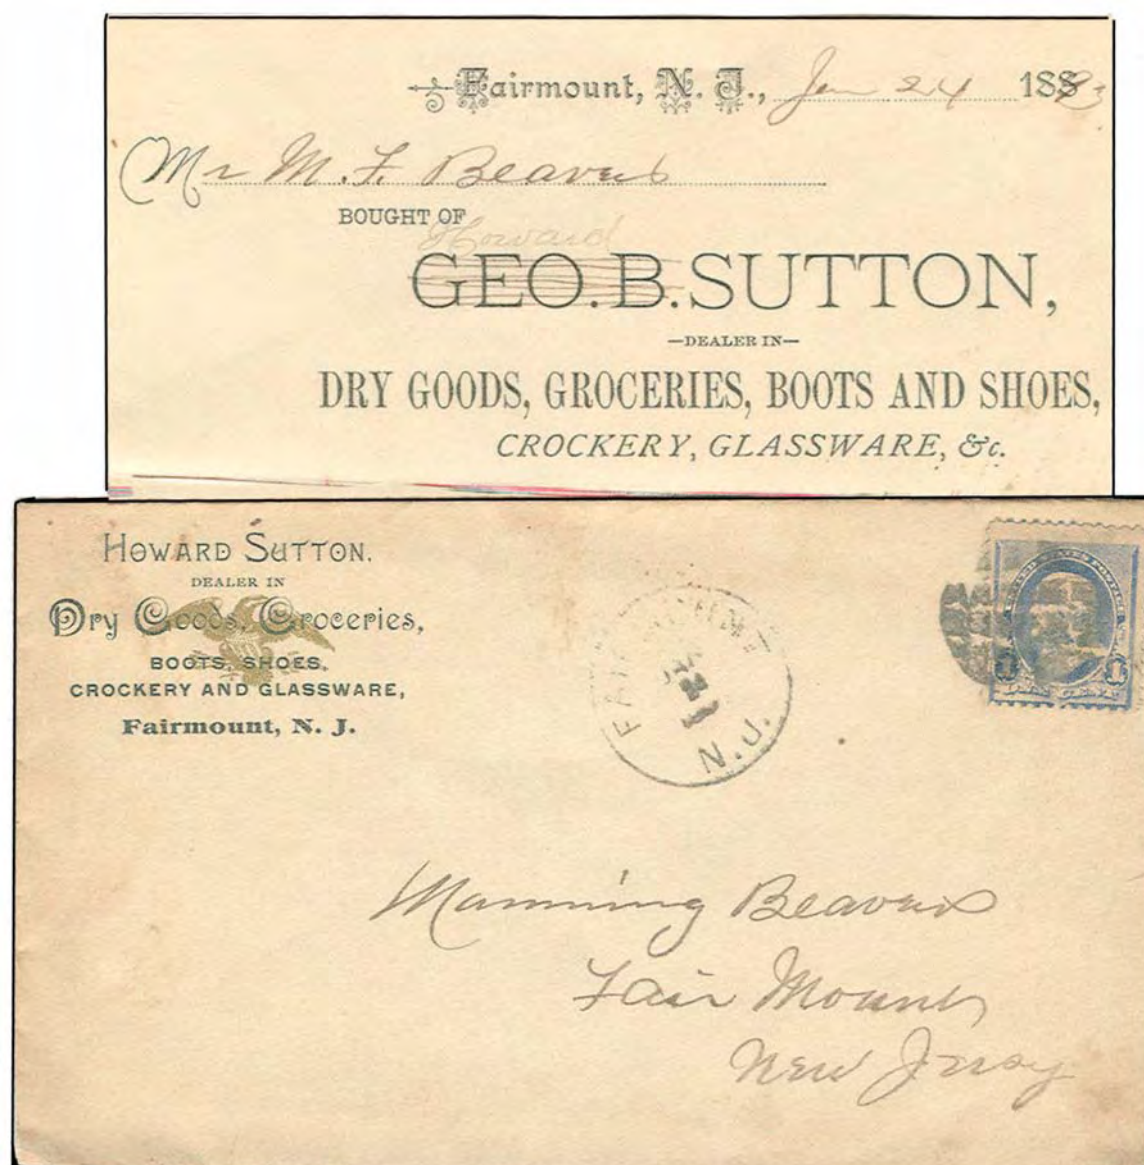 Fairmount, N. J., Jan 24 1893
Mr M. F. Beavers
BOUGHT OF
Howard
GEO. B. SUTTON,
—DEALER IN—
DRY GOODS, GROCERIES, BOOTS AND SHOES,
CROCKERY, GLASSWARE, &c.
HOWARD SUTTON.
DEALER IN
Dry Goods, Groceries,
BOOTS, SHOES,
CROCKERY AND GLASSWARE,
Fairmount, N. J.
FAIRMOUNT
JAN
24
N.J.
1 1
Manning Beavers
Fair Mount
New Jersy